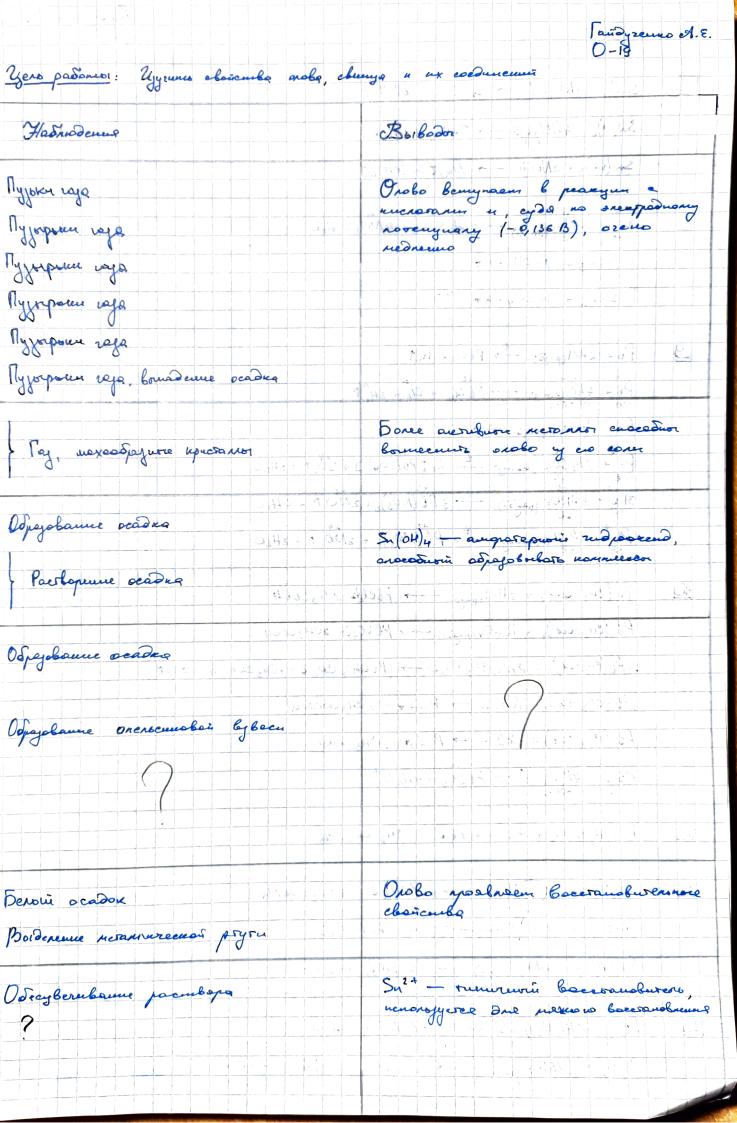 Гайдученко А.Е.
О-19
Цель работы: Изучить свойства олова, свинца и их соединений
Наблюдения
Выводы
Пузыки газа
Пузырьки газа
Пузырьки газа
Пузырьки газа
Пузырьки газа
Пузырьки газа, выпадение осадка
Олово вступает в реакции с
кислотами и, судя по электродному
потенциалу (-0,136 В), очень
медленно
Газ, мохообразные кристаллы
Более активные металлы способны
вытеснить олово из его соли
Образование осадка
Растворение осадка
Sn(OH)4 — амфотерный гидроксид,
способный образовывать комплексы
Образование осадка
Образование апельсиновой взвеси
?
?
Белый осадок
Выделение металлической ртути
Олово проявляет восстановительные
свойства
Обесцвечивание раствора
?
Sn2+ — типичный восстановитель,
используется для мягкого восстановления